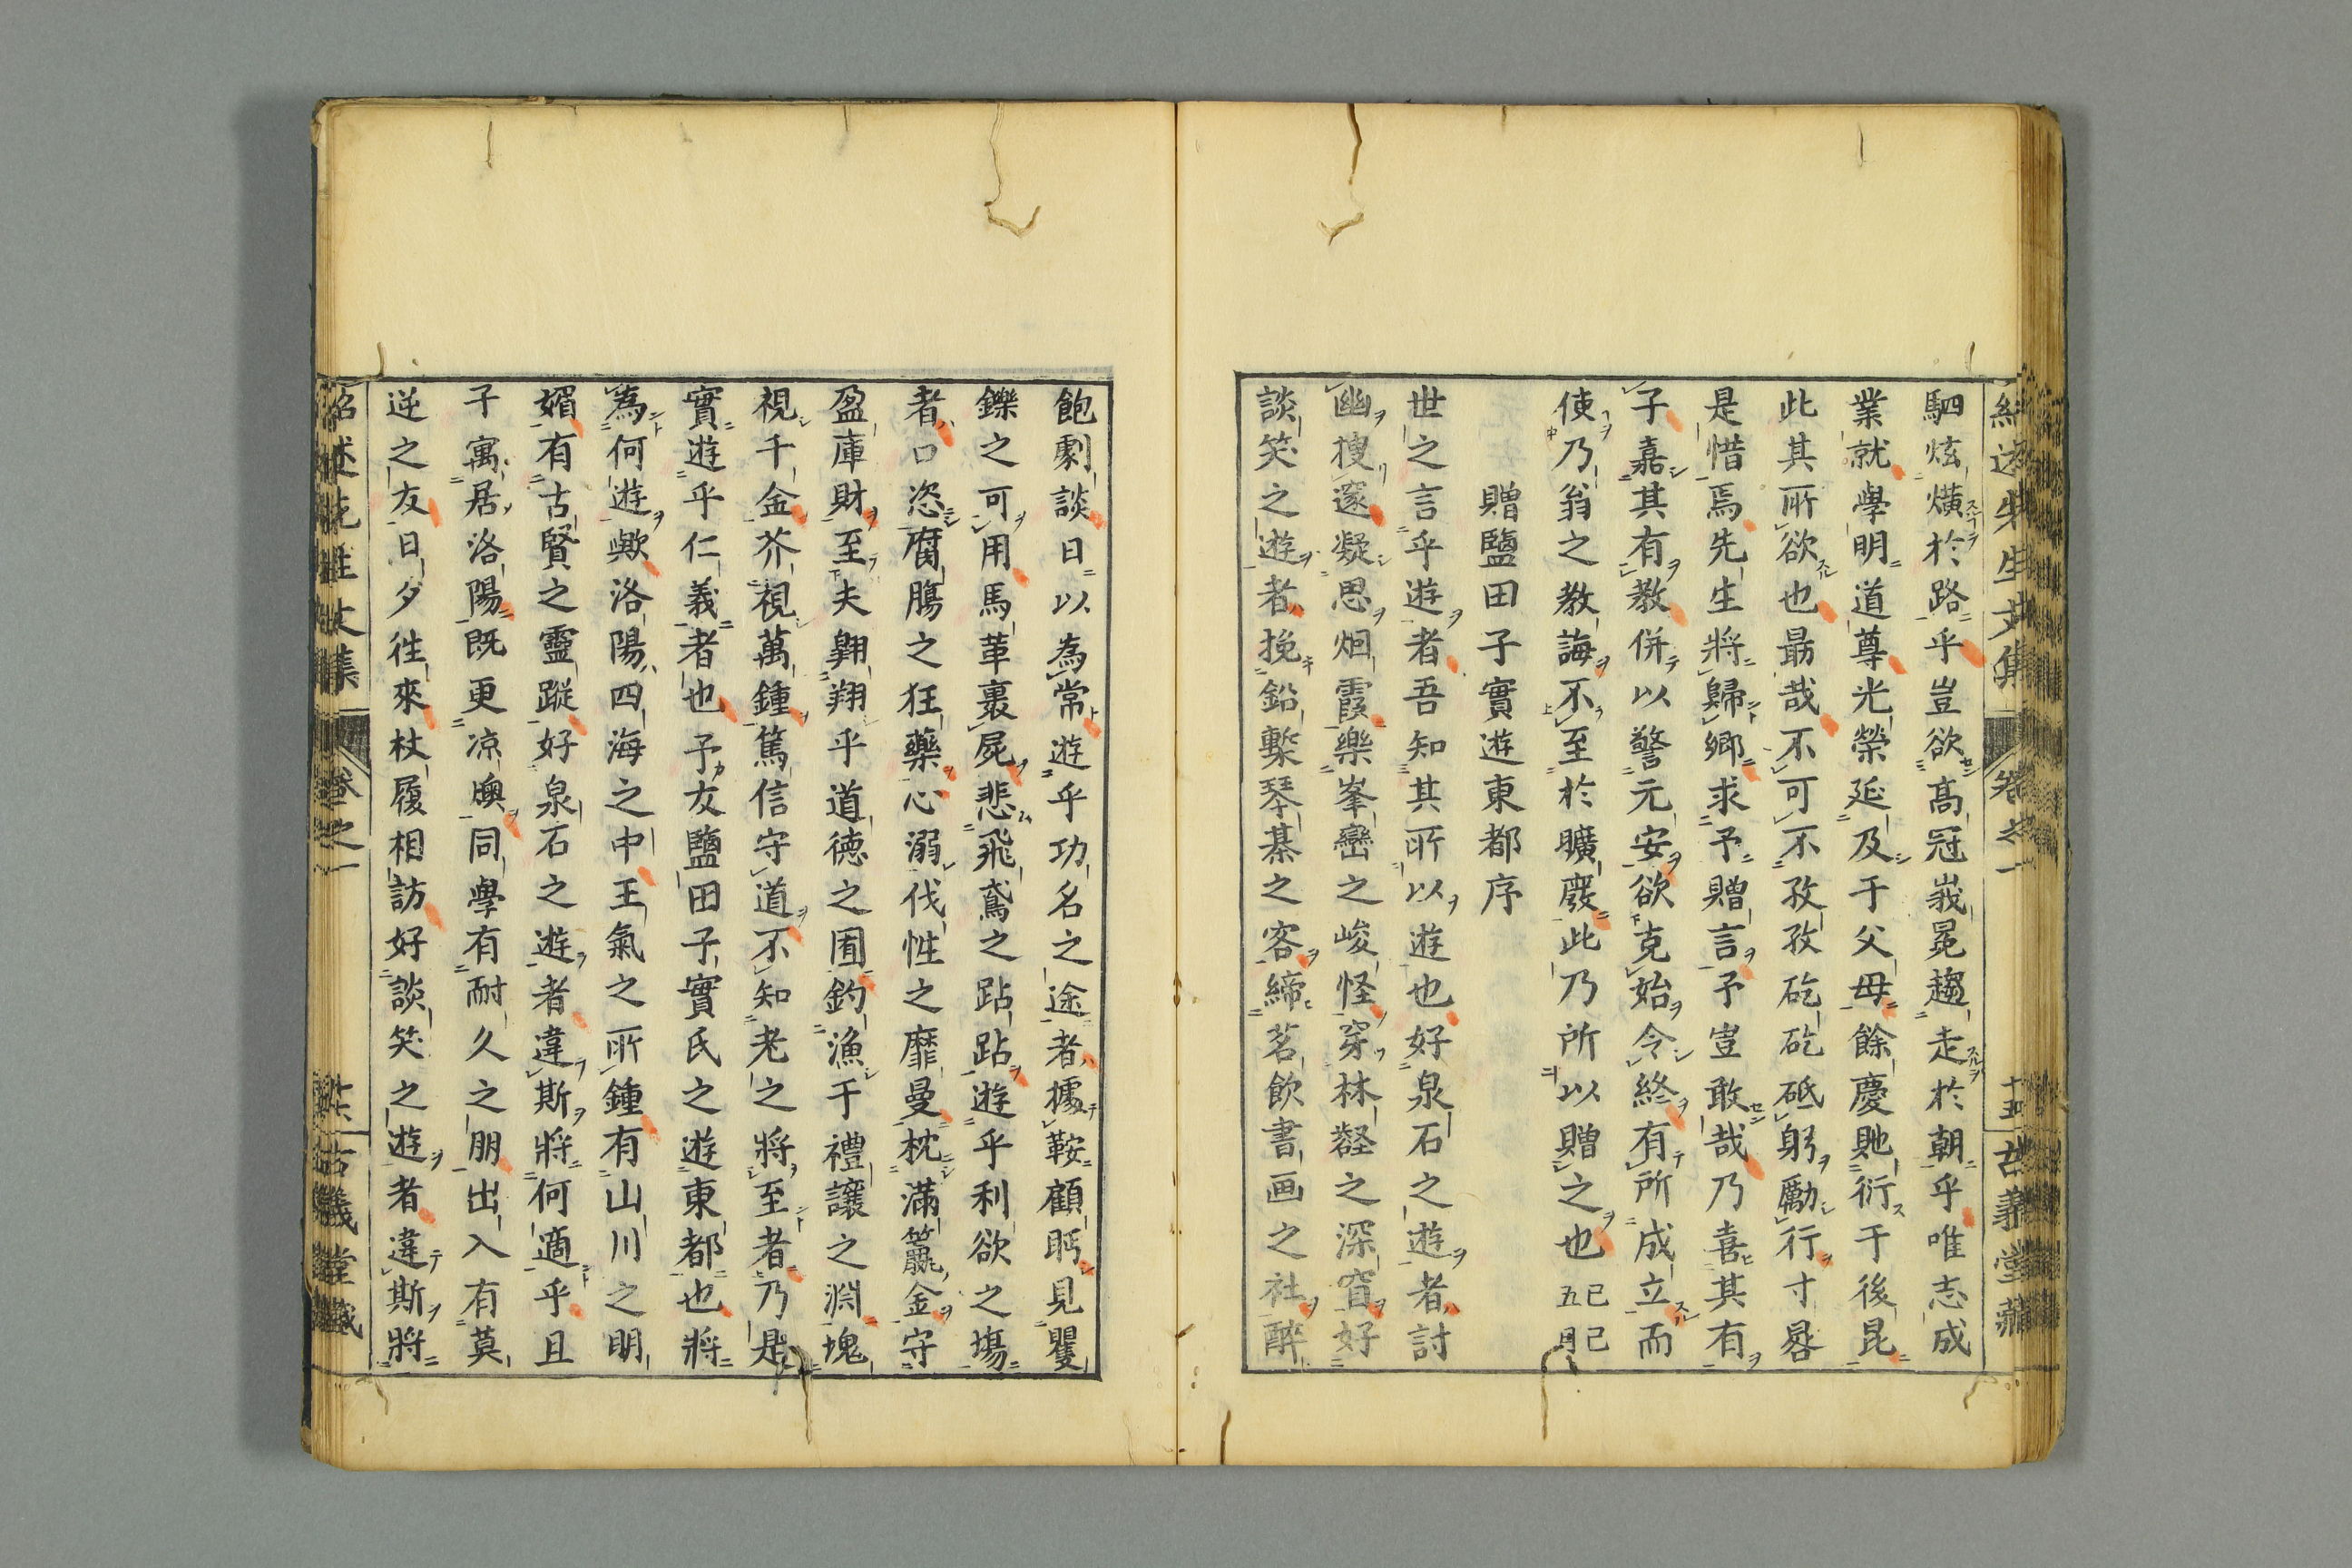 紹述先生文集 卷之一 十五 古義堂藏
駟炫熿於路乎豈欲高冠峩冕趨走於朝乎唯志成
業就學明道尊光榮延及于父母餘慶貤衍于後昆
此其所欲也最哉不可不孜孜矻矻砥躬勵行寸晷
是惜焉先生將歸鄉求予贈言予豈敢哉乃喜其有
子嘉其有教併以警元安欲克始令終有所成立而
使乃翁之教誨不至於曠廢此乃所以贈之也己巳五月
贈鹽田子實遊東都序
世之言乎遊者吾知其所以遊也好泉石之遊者討
幽搜邃凝思烟霞樂峯巒之峻怪穿林壑之深窅好
談笑之遊者挽鉛槧琴棊之客締茗飲書画之社醉
飽劇談日以為常遊乎功名之途者據鞍顧眄見矍
鑠之可用馬革裹屍悲飛鳶之跕跕遊乎利欲之場
者口恣腐腸之狂藥心溺伐性之靡曼枕滿籯金守
盈庫財至夫翱翔乎道德之囿釣漁于禮讓之淵塊
視千金芥視萬鍾篤信守道不知老之將至者乃是
實遊乎仁義者也予友鹽田子實氏之遊東都也將
為何遊歟洛陽四海之中王氣之所鍾有山川之明
媚有古賢之靈蹤好泉石之遊者違斯將何適乎且
子寓居洛陽既更凉燠同學有耐久之朋出入有莫
逆之友日夕往來杖履相訪好談笑之遊者違斯將
紹述先生文集 卷之一 十六 古義堂藏